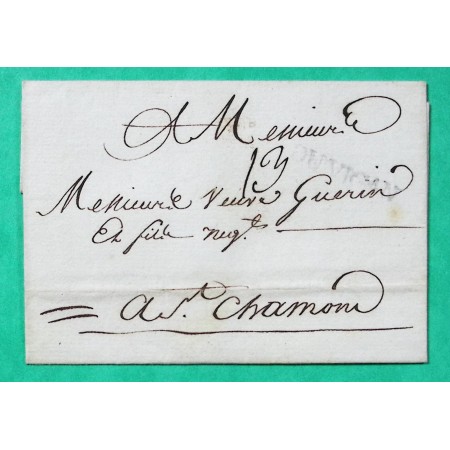 A Messieurs
13
Messieurs Veuve Guerin
Et fils negt.
A St. Chamond